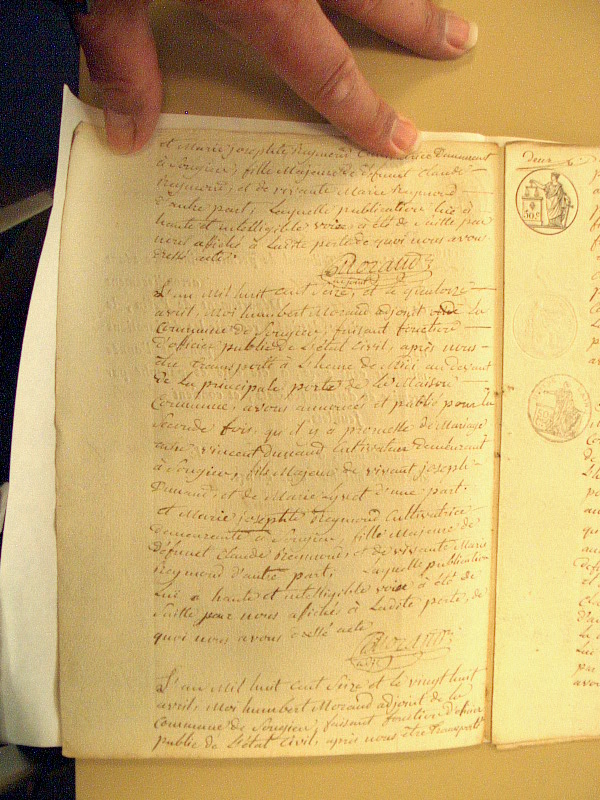 et Marie Josephte Reymond Cultivatrice Demeurant
à Songieu, fille Majeure de défunt Claude
Reymond, et de vivante Marie Reymond
d'autre part, Laquelle publication lue à
haute et intelligible voix, a été de suite par
nous affiché à Ladite porte de quoi nous avons
dressé acte
Morand
adjoint
L'an Mil huit cent Seize, et le quatorze
avril, Moi humbert Morand adjoint de la
Commune de Songieu, faisant fonction
d'officier public de L'état Civil, après nous
être transporté à L'heure de Midi au devant
de La principale porte de la Maison
Commune, avons annoncé et publié pour la
Seconde fois, qu'il y a promesse de Mariage
entre vincent Dunand Cultivateur demeurant
à Songieu, fils Majeur de vivant joseph
Dunand, et de Marie d'une part.
et Marie josephte Reymond Cultivatrice
Demeurante à Songieu, fille Majeure de
Défunt Claude Reymond, et de vivante Marie
Reymond d'autre part, Laquelle publication
Lue a haute et intelligible voix a été de
Suite par nous affiché à Ladite porte, de
quoi nous avons dressé acte
Morand
adjt
L'an Mil huit cent Seize et le vingt huit
avril, Moi humbert Morand adjoint de la
Commune de Songieu, faisant fonction d'officier
public de L'état Civil, après nous être transporté
Deux
50c